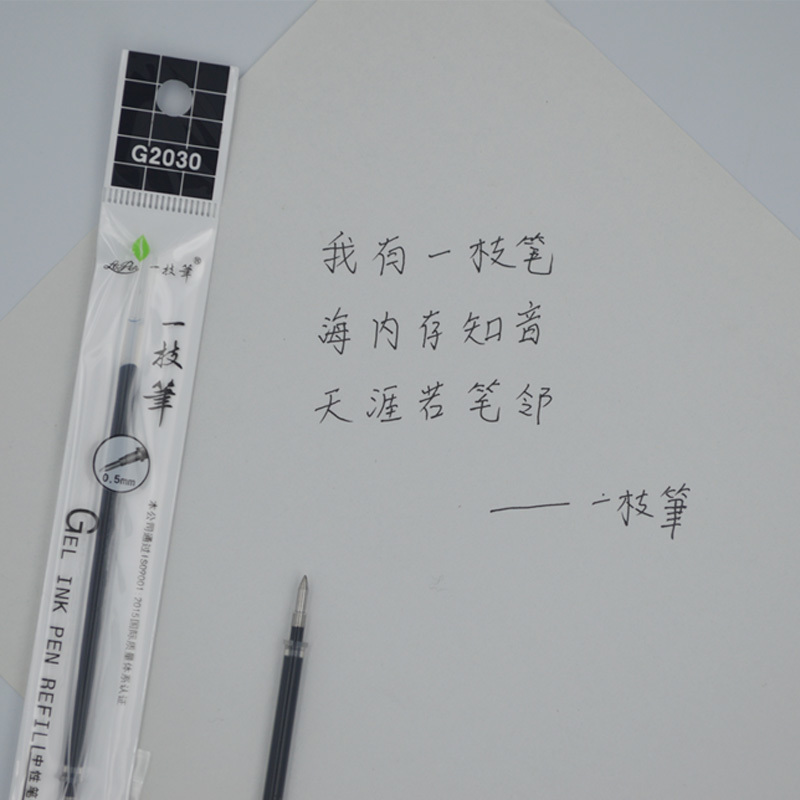 G2030
LePen 一枝筆®
一枝筆
0.5mm
本公司通过ISO9001:2015国际质量体系认证
GEL INK PEN REFILL 中性笔
我有一枝笔
海内存知音
天涯若笔邻
——一枝筆